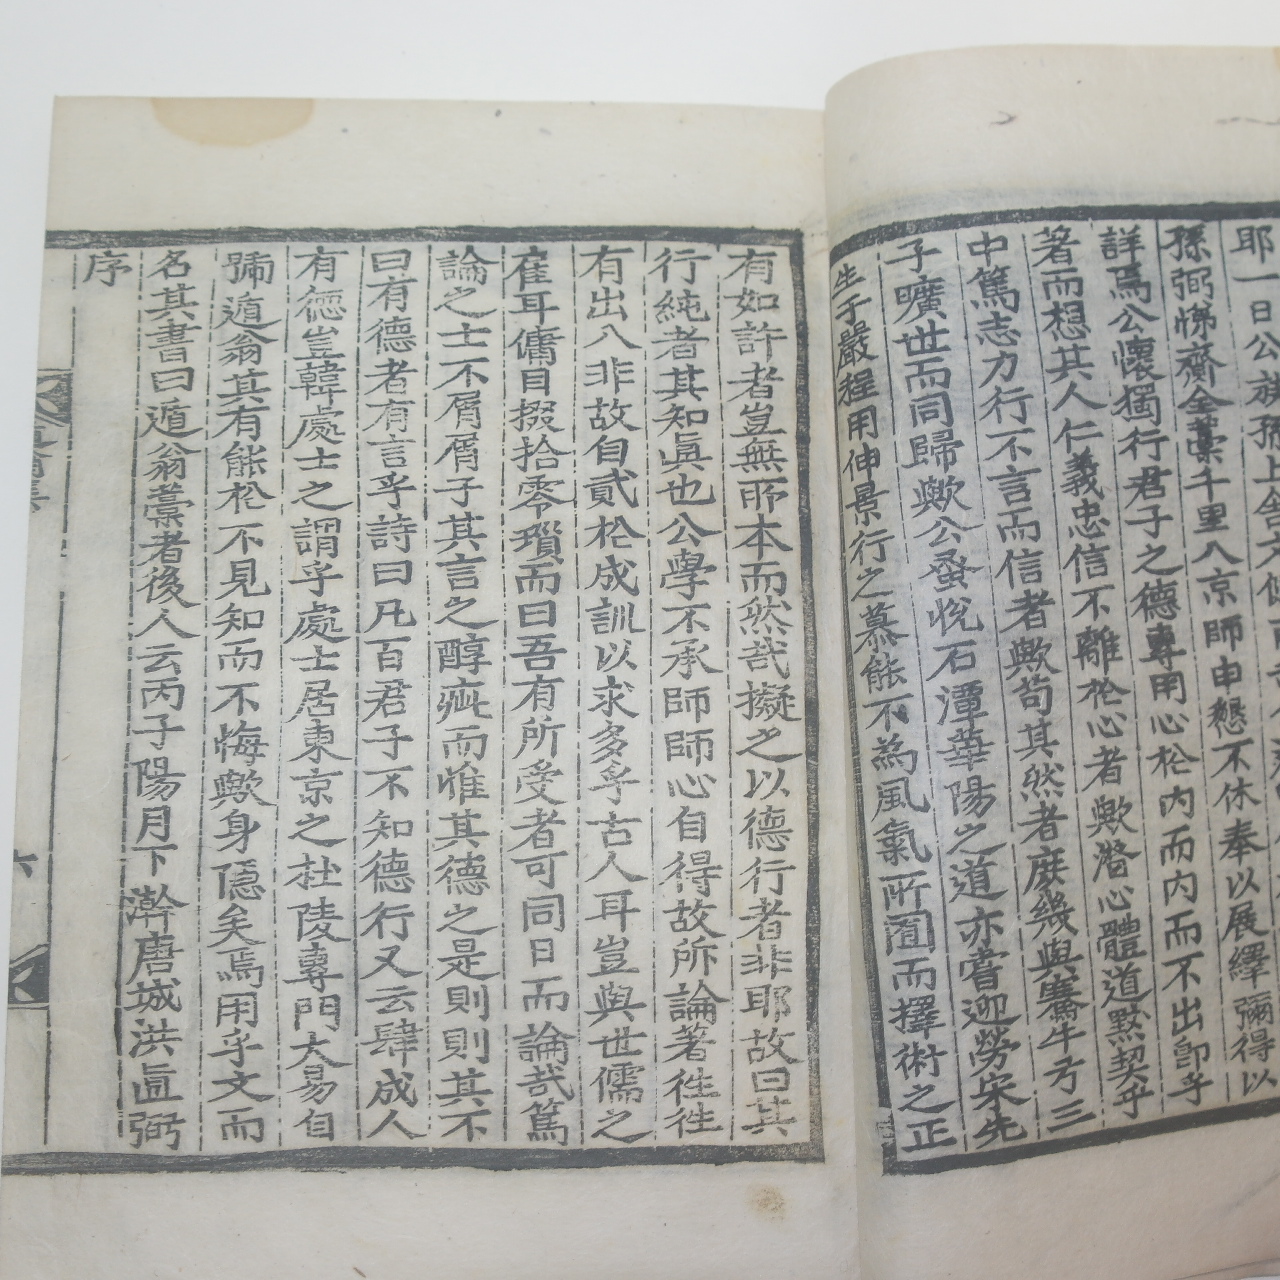 耶一日公族孫上舍文
孫弼悌齎全藁千里入京師申懇不休奉以展繹彌得以
詳焉公懷獨行君子之德專用心於內而內而不出卽乎
著而想其人仁義忠信不離於心者歟潛心體道默契乎
中篤志力行不言而信者歟苟其然者庶幾與騫牛方三
子曠世而同歸歟公蚤悅石潭華陽之道亦嘗迎勞宋先
生于嚴程用伸景行之慕能不為風氣所囿而擇術之正
有如許者豈無所本而然哉擬之以德行者非耶故曰其
行純者其知眞也公學不承師師心自得故所論著徃徃
有出入非故自貳於成訓以求多乎古人耳豈與世儒之
雇耳傭目掇拾零瑣而曰吾有所受者可同日而論哉篤
論之士不屑屑于其言之醇疵而惟其德之是則則其不
曰有德者有言乎詩曰凡百君子不知德行又云肆成人
有德豈韓處士之謂乎處士居東京之杜陵專門大易自
號遁翁其有能於不見知而不悔歟身隱矣焉用乎文而
名其書曰遁翁藁者後人云丙子陽月下澣唐城洪直弼
序
六